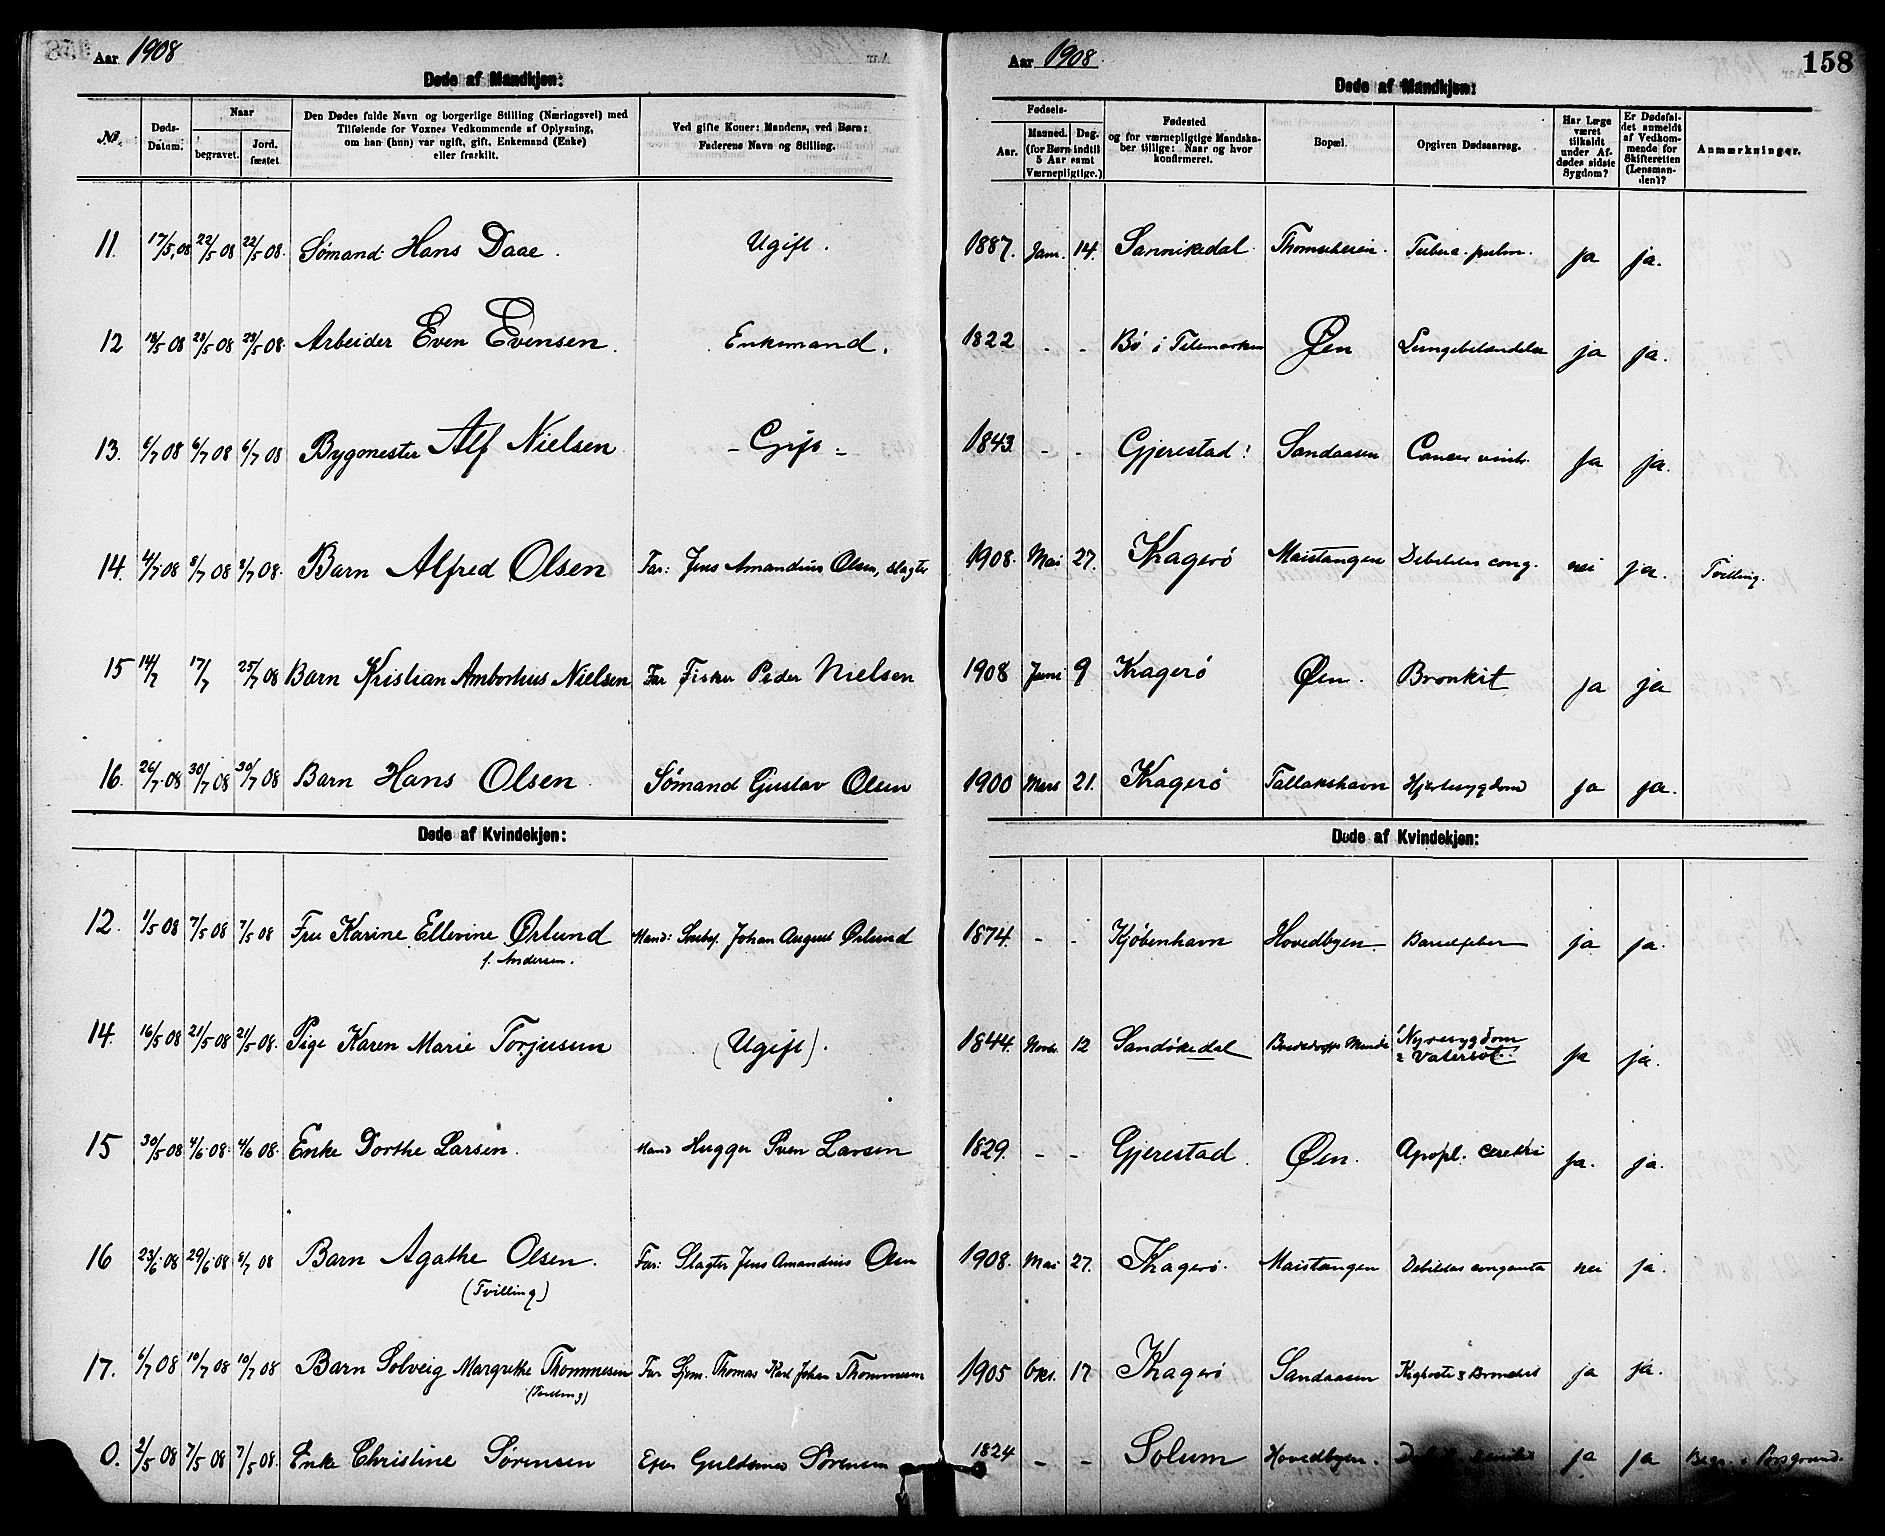 Aar 1908
Døde af Mandkjøn:
No.
Døds-Datum.
Naar
begravet.
Jord. fæstet.
Den Dødes fulde Navn og borgerlige Stilling (Næringsvei) med
Tilføiende for Voxnes Vedkommende af Oplysning,
om han (hun) var ugift, gift, Enkemand (Enke)
eller fraskilt.
Ved gifte Koner: Mandens, ved Børn:
Faderens Navn og Stilling.
Aar 1908.
158
Døde af Mandkjøn:
Fødsels-
Aar.
Maaned. Dag.
(for Børn indtil
5 Aar samt
Værnepligtige.)
Fødested
og for værnepligtige Mandska-
ber tillige: Naar og hvor
konfirmeret.
Bopæl.
Opgiven Dødsaarsag.
Har Læge
været
tilkaldt
under Af-
dødes sidste
Sygdom?
Er Dødsfal-
det anmeldt
af Vedkom-
mende for
Skifteretten
(Lensman-
den)?
Anmærkninger.
11. 17/5,08 22/5 08 22/5 08. Sømand Hans Daae. Ugift. 1887. Jan. 14. Sannikedal Tuberc. pulm. ja ja.
12 18/5 08 29/5 08 Arbeider Even Evensen. Enkemand. 1822 - - Bø i Telemarken Øen Lungebetændelse ja ja.
13. 6/7 08 6/7 08 Bygmester Alf Nielsen - Gift - 1843 - - Gjerestad Sandaasen Cancer ventr. ja ja.
14. 4/7 08 8/7 08 8/7 08. Barn Alfred Olsen Far: Jens Amandius Olsen, slagter 1908. Mai 27. Kragerö Maistangen Debilitas cong. nei ja. Tvilling.
15 14/7 17/7 25/7 08 Barn Kristian Nielsen Far Fisker Peder Nielsen 1908 Juni 9 Kragerö Øen. Bronkit ja ja
16. 26/7 08 30/7 08 30/7 08 Barn Hans Olsen. Sømand Gustav Olsen 1900 Mars 21. Kragerö Tallakshavn Hjertesygdom ja ja.
Døde af Kvindekjøn:
Døde af Kvindekjøn:
12. 1/5 08 7/5 08 7/5 08 Fru Karine Ellevine Ørlund Mand: Johan August Ørlund 1874 - - Kjøbenhavn Hovedbyen Barselfeber ja ja.
f. Andersen.
14. 16/5 08 21/5 08 21/5 08. Pige Karen Marie Torjusen (Ugift). 1844. Novbr. 12 Sandökedal Nyresygdom ja ja.
& Vatersot.
15 30/5 08 4/6 08. 4/6 08. Enke Dorthe Larsen. Mand Hugger Sven Larsen 1829. - - Gjerestad. Øen. Apopl. cerebri ja. ja.
16 23/6 08 29/6 08 8/7 08 Barn Agathe Olsen. Far: Slagter Jens Amandius Olsen 1908. Mai 27. Kragerö. Maistangen Debilitas congenita nei ja.
(Tvilling)
17. 6/7 08 10/7 08 10/7 08 Barn Solveig Margrethe Thommesen Far Sjöm. Thomas Karl Johan Thommesen 1905 Okt. 17 Kragerö Sandaasen Kighoste & Bronchit ja ja.
(Tvilling)
0. 2/5 08 7/5 08 7/5 08 Enke Christine Sörensen Efter Guldsmed Sörensen 1824 - - Solum Hovedbyen. ja ja Begr. i Porsgrund.